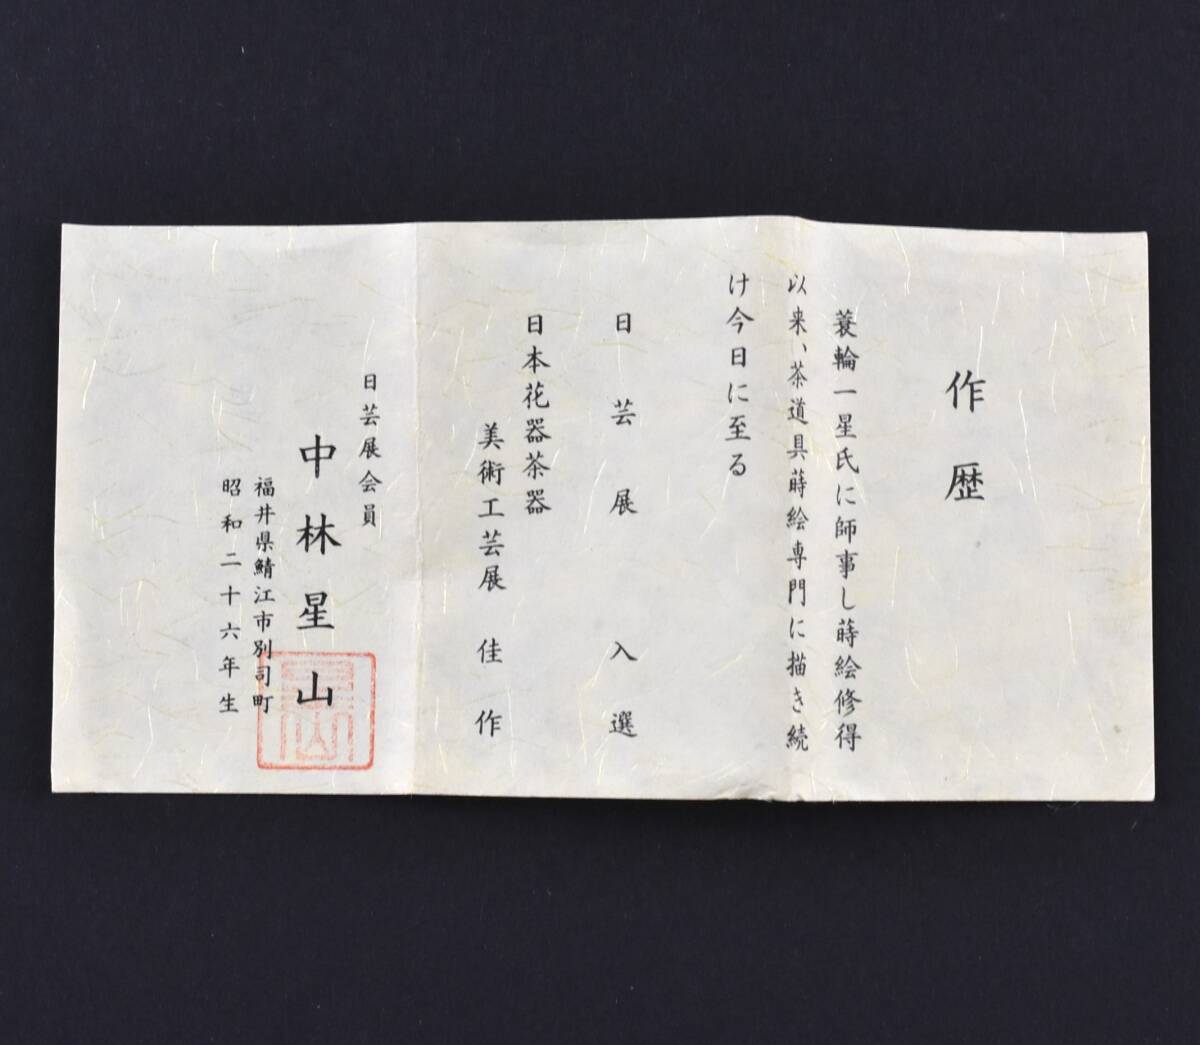 作歴
蓑輪一星氏に師事し蒔絵修得
以来、茶道具蒔絵専門に描き続
け今日に至る
日芸展入選
日本花器茶器
美術工芸展 佳作
日芸展会員
中林星山
福井県鯖江市別司町
昭和二十六年生